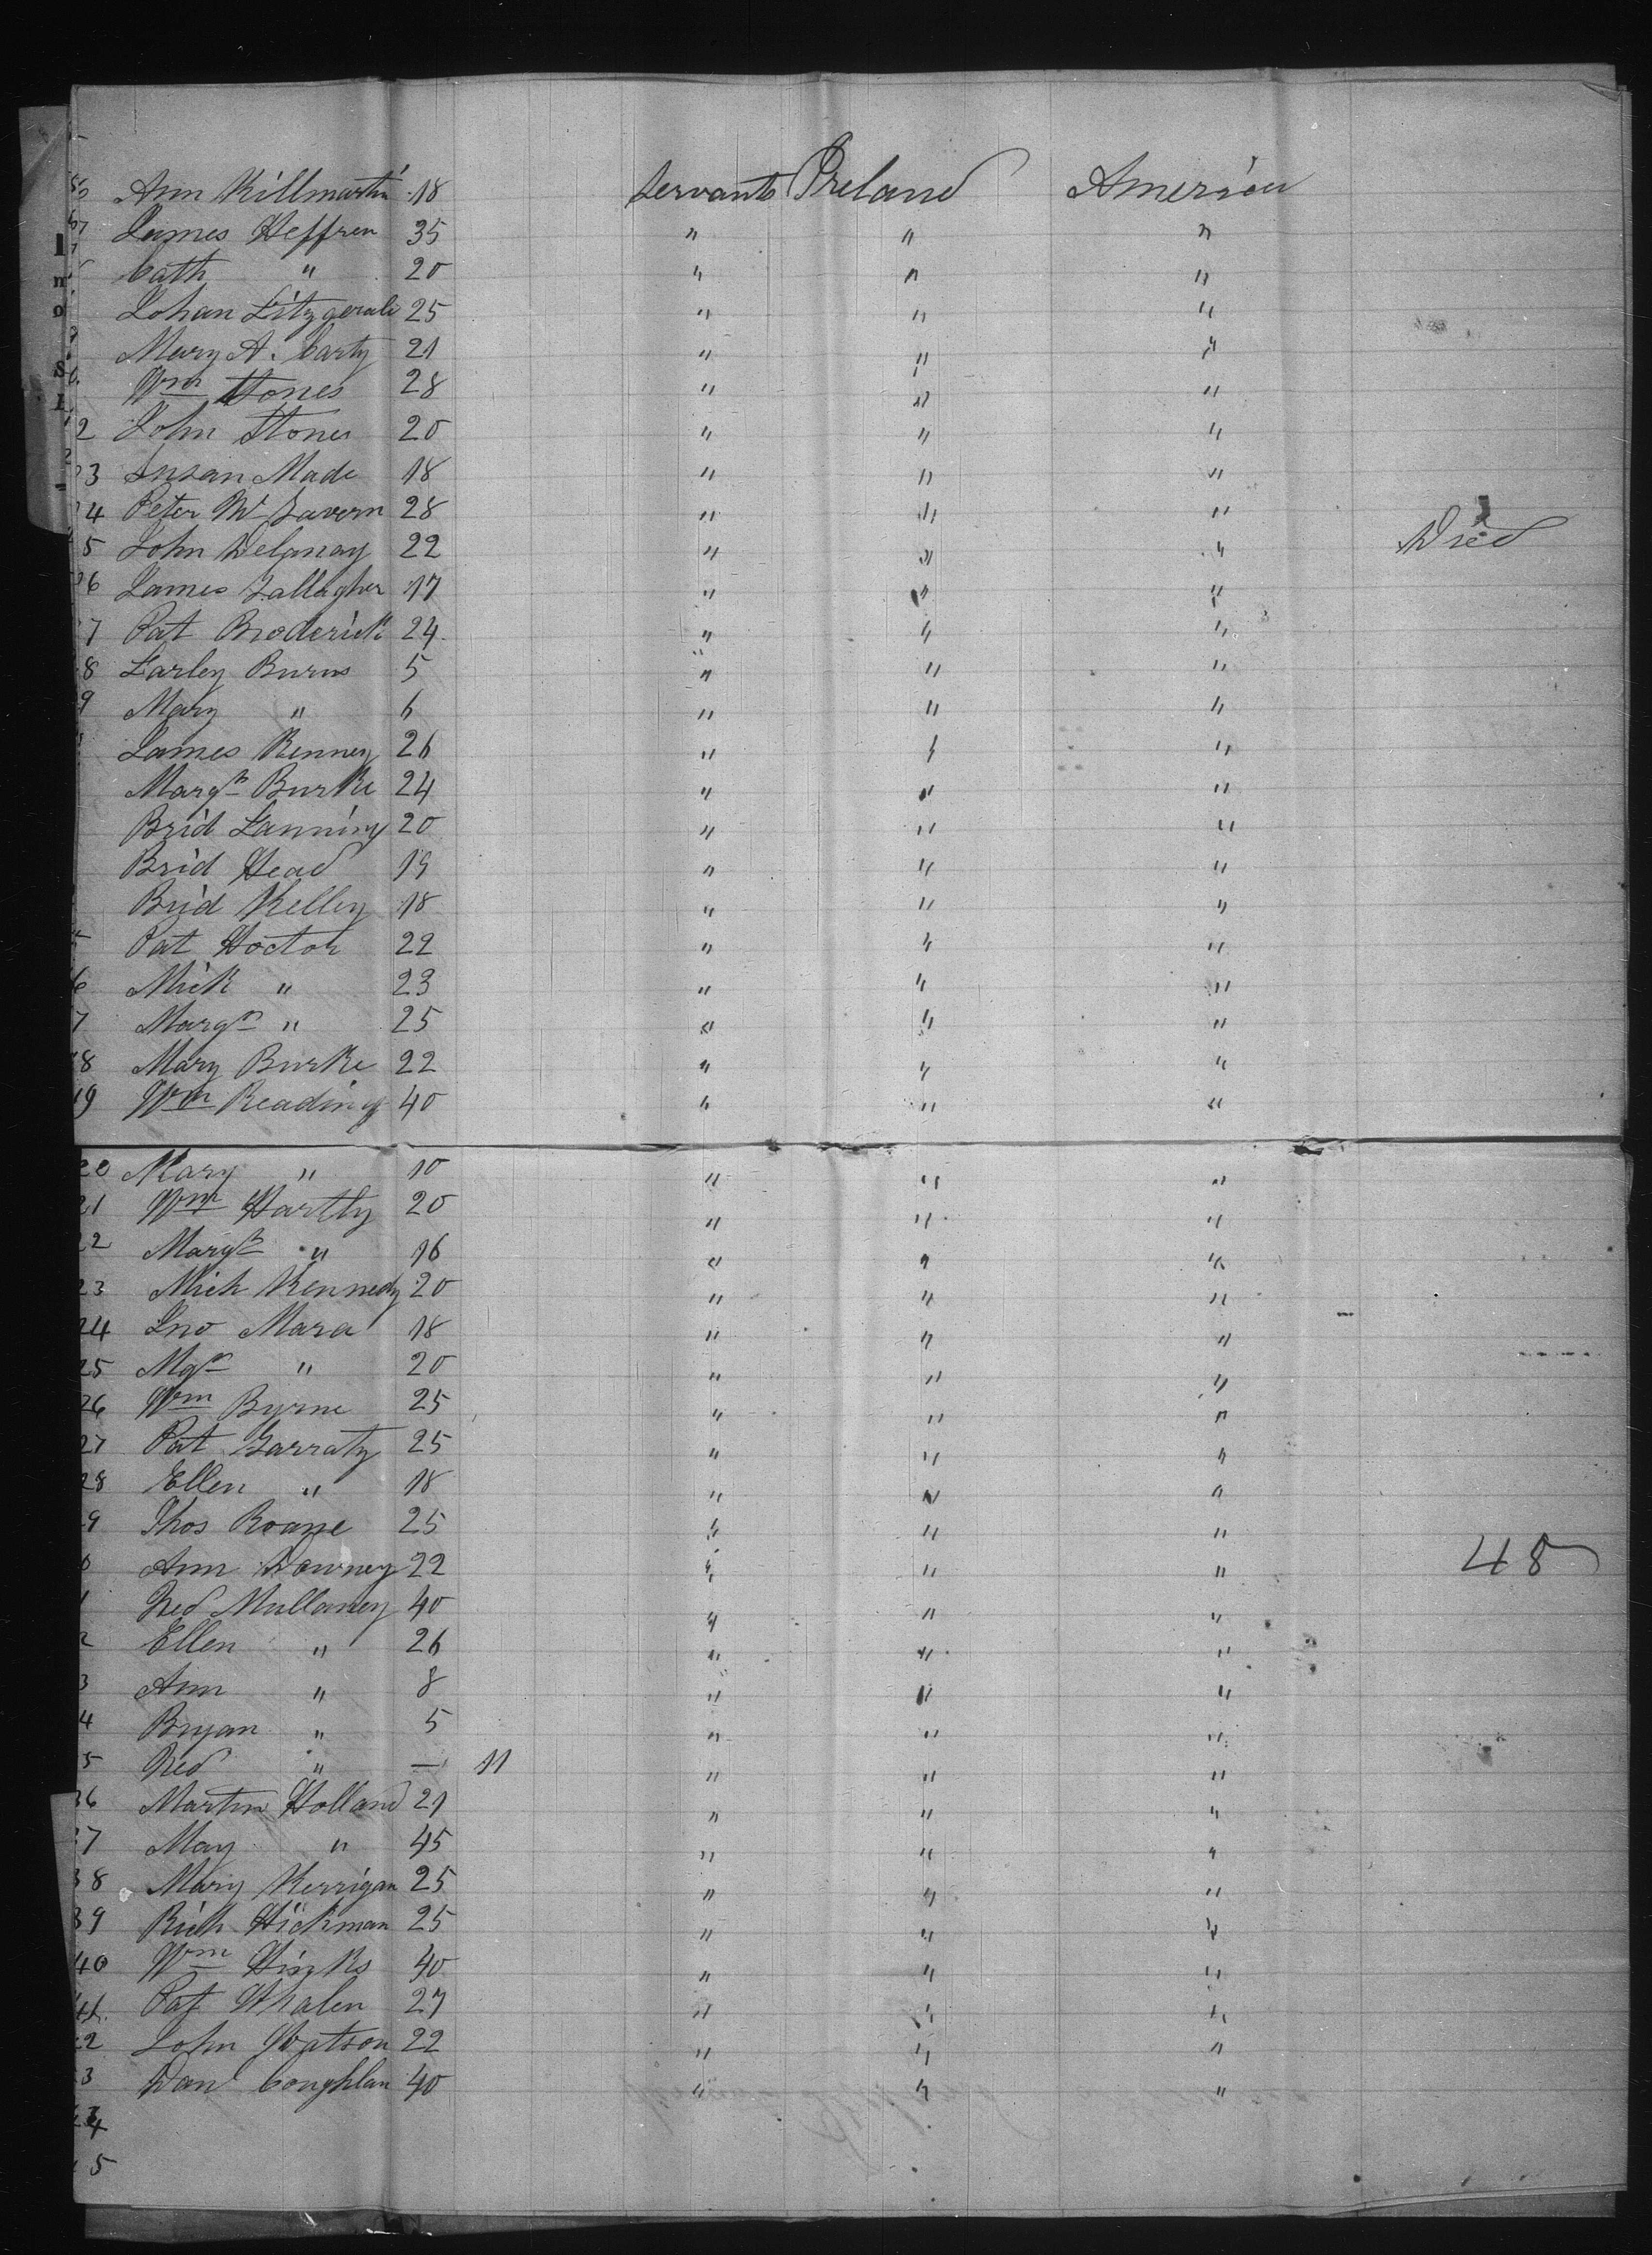 Ann Killmartin 18 Servants Ireland America
James Heffren 35 " " "
Cath " 20 " " "
Johan Fitzgerald 25 " " "
Mary A. Carty 21 " " "
Wm Stones 28 " " "
2 John Stones 20 " " "
3 Susan Made 18 " " "
4 Peter Mc Gavern 28 " " "
5 John Delanay 22 " " " Died
6 James Gallagher 17 " " "
7 Pat Broderick 24 " " "
8 Farley Burns 5 " " "
9 Mary " 6 " " "
James Kenney 26 " " "
Margt Burke 24 " " "
Brid Lanning 20 " " "
Brid Head 19 " " "
Brid Kelley 18 " " "
Pat Hoctor 22 " " "
6 Mick " 23 " " "
7 Margt " 25 " " "
18 Mary Burke 22 " " "
19 Wm Reading 40 " " "
20 Mary " 10 " " "
21 Wm Hartly 20 " " "
22 Margt " 16 " " "
23 Mich Kennedy 20 " " "
24 Jno Mara 18 " " "
25 Mgt " 20 " " "
26 Wm Byrne 25 " " "
27 Pat Garraty 25 " " "
28 Ellen " 18 " " "
29 Thos Roane 25 " " "
0 Ann Downey 22 " " " 48
1 Ned Mullaney 40 " " "
2 Ellen " 26 " " "
3 Ann " 8 " " "
4 Bryan " 5 " " "
5 Ned " — 11 " " "
36 Martin Holland 21 " " "
37 May " 45 " " "
38 Mary Kerrigan 25 " " "
39 Rich Hickman 25 " " "
40 Wm Hinks 40 " " "
41 Pat Whalen 27 " " "
2 John Watson 22 " " "
3 Dan Coughlan 40 " " "
4
5